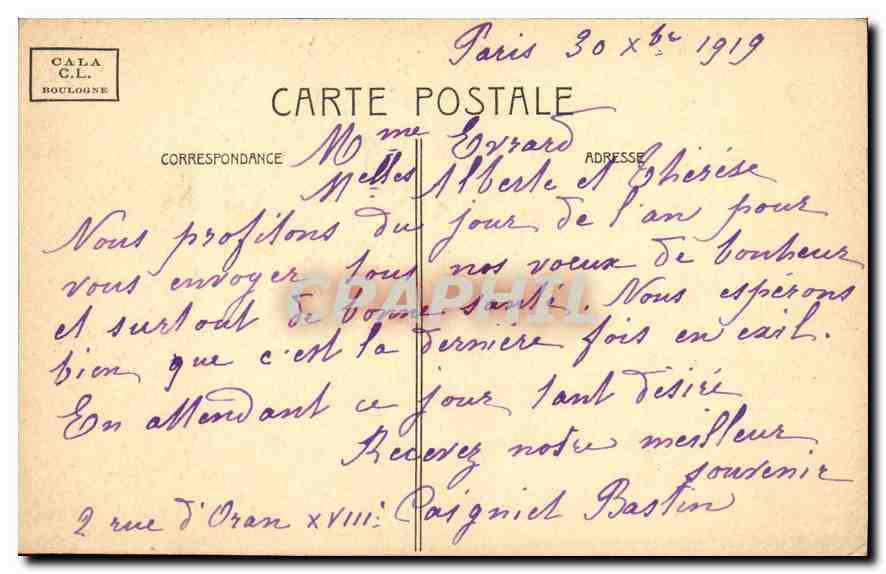 Paris 30 Xbre 1919
CALA
C.L.
BOULOGNE
CARTE POSTALE
CORRESPONDANCE
ADRESSE
Mme Evrard
Melles Alberte et Thérèse
Nous profitons du jour de l'an pour
vous envoyer tous nos voeux de bonheur
et surtout de bonne santé. Nous espérons
bien que c'est la dernière fois en exil.
En attendant ce jour tant désiré
Recevez notre meilleur
souvenir
2 rue d'Oran XVIII: Coigniet Bastin
CPAPHIL